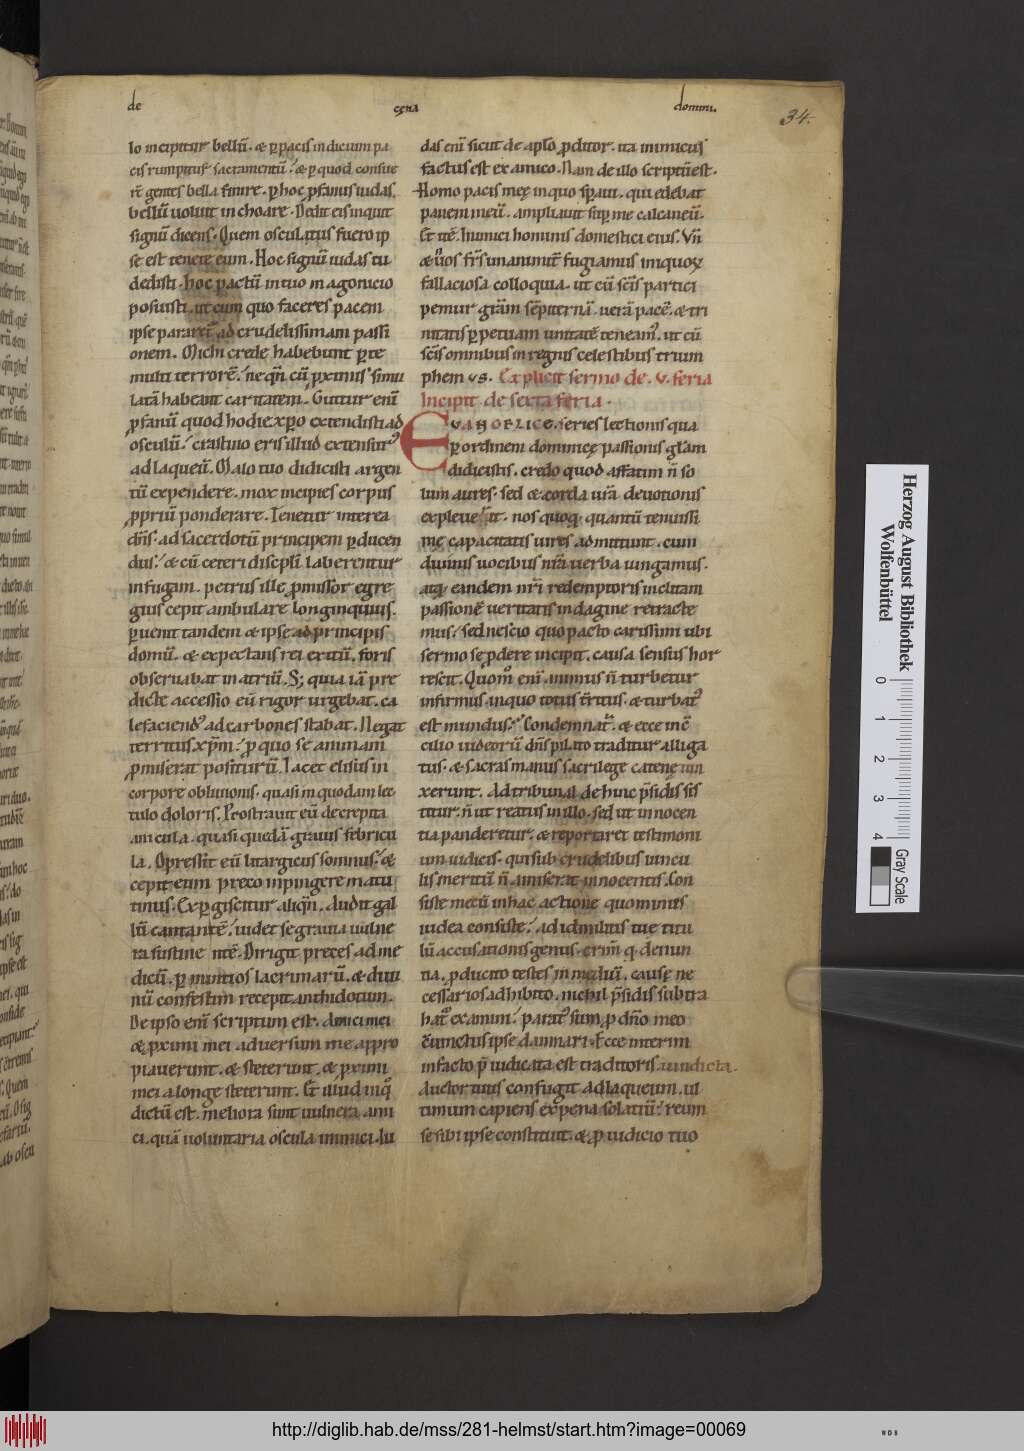 de cęna domini.
34.
lo incipitur bellū. & ꝑ pacis indicium pa
cis rumpitur sacramentū. & ꝑ quod consue
rē gentes bella finire. ꝑ hoc ꝓfanus iudas
bellū uoluit inchoare. Dedit eis inquit
signū dicens. Quem osculatus fuero ip
se est tenete eum. Hoc signū iudas tu
dedisti. hoc pactū in tuo in agonicio
posuisti. ut cum quo faceres pacem
ipse pararet ad crudelissimam passi
onem. Michi crede habebunt ꝑ te
multi terrorē. ne qn̄ cū ꝓximis simu
latā habeant caritatem. Guttur enī
ꝓfanū quod hodie xp̄o extendisti ad
osculū. crastino eris illud extensurꝰ
ad laqueū. Malo tuo didicisti argen
tū expendere. mox incipies corpus
ꝓpriū ponderare. Tenetur interea
dn̄s. ad sacerdotū principem ꝑducen
dus. & cū ceteri discipli laberentur
in fugam. petrus ille ꝓmissor egre
gius cepit ambulare longinquius.
ꝑuenit tandem & ipse ad principis
domū. & expectans rei exitū. foris
obseruabat in atriū. S; quia iā pre
dicte accessio eū rigor urgebat. ca
lefaciendꝰ ad carbones stabat. Negat
territus xp̄m. ꝓ quo se animam
ꝓmiserat positurū. Iacet elisus in
corpore obliuionis. quasi in quodam lec
tulo doloris. Prostrauit eū decrepita
anicula. quasi quedā grauis febricu
la. Opressit eū litargicus somnus. &
cepit eum preco inpingere matu
tinus. Expgiscitur aliqn̄. Audit gal
lū cantantē. uidet se grauia uulne
ra sustine ntē. Dirigit preces ad me
dicū. ꝑ nuntios lacrimarū. & diui
nū confestim recepit anthidotum.
De ipso enī scriptum est. Amici mei
& ꝓximi mei aduersum me appro
piauerunt. & steterunt. & ꝓximi
mei a longe steterunt. Et illud inq
dictū est. meliora sunt uulnera ami
ci. quā uoluntaria oscula inimici. Iu
das enī sicut de aplo ꝓditor. ita inimicus
factus est ex amico. Nam de illo scriptū est.
Homo pacis meę in quo spaui. qui edebat
panem meū. ampliauit sup me calcaneū.
Et itē. Inimici hominis domestici eius. Vn̄
& uos fr̄s unanimit fugiamus iniquoꝝ
fallaciosa colloquia. ut cū scīs partici
pemur grām sempiternā. uerā pacē. & tri
nitatis ꝑpetuam unitatē teneamꝰ. ut cū
scīs omnibus in regnis celestibus trium
phemus. Explicit sermo de .v. feria
Incipit de sexta feria.
EVANGELICE. series lectionis qua
ꝑ ordinem dominicę passionis glām
didicistis. credo quod affatim n̄ so
lum aures. sed & corda urā deuotionis
expleuerit. nos quoq; quantū tenuissi
me capacitatis uires admittunt. cum
diuinis uocibus nrā uerba iungamus.
atq; eandem nr̄i redemptoris inclitam
passionē ueritatis indagine retracte
mus. sed nescio quo pacto carissimi ubi
sermo se pdere incipit. causa sensus hor
rescit. Quomͦ enī animus n̄ turbetur
infirmus. in quo totus territus. & turbatꝰ
est mundus. Condemnat. & ecce in c̄
cilio iudeorū dn̄s pilato traditur alliga
tus. & sacras manus sacrilege catene uin
xerunt. Ad tribunal dehinc p̄sidis sis
titur. n̄ ut reatus in illo. sed ut innocen
tia panderetur. & reportaret testimoni
um iudicis. qui sub crudelibus uincu
lis meritū n̄ amiserat innocentis. Con
siste mecū in hac actione quominus
iudea consiste. ad idmittis tue titu
lū accusationis genus. crim̄ q denun
tia. ꝓducito testes in mediū. causę ne
cessarios adhibito. nichil p̄sidis subtra
hatꝰ examini. paratꝰ sum ꝓ dn̄o meo
cunctus ipse damnari. Ecce interim
in facto p̄iudicata est traditoris. uindicta.
Auctor tuus confugit ad laqueum. ul
timum capiens ex pena solatiū. reum
se sibi ipse constituit. & ꝓ iudicio tuo
Herzog August Bibliothek
Wolfenbüttel
0 1 2 3 4
Gray Scale
http://diglib.hab.de/mss/281-helmst/start.htm?image=00069